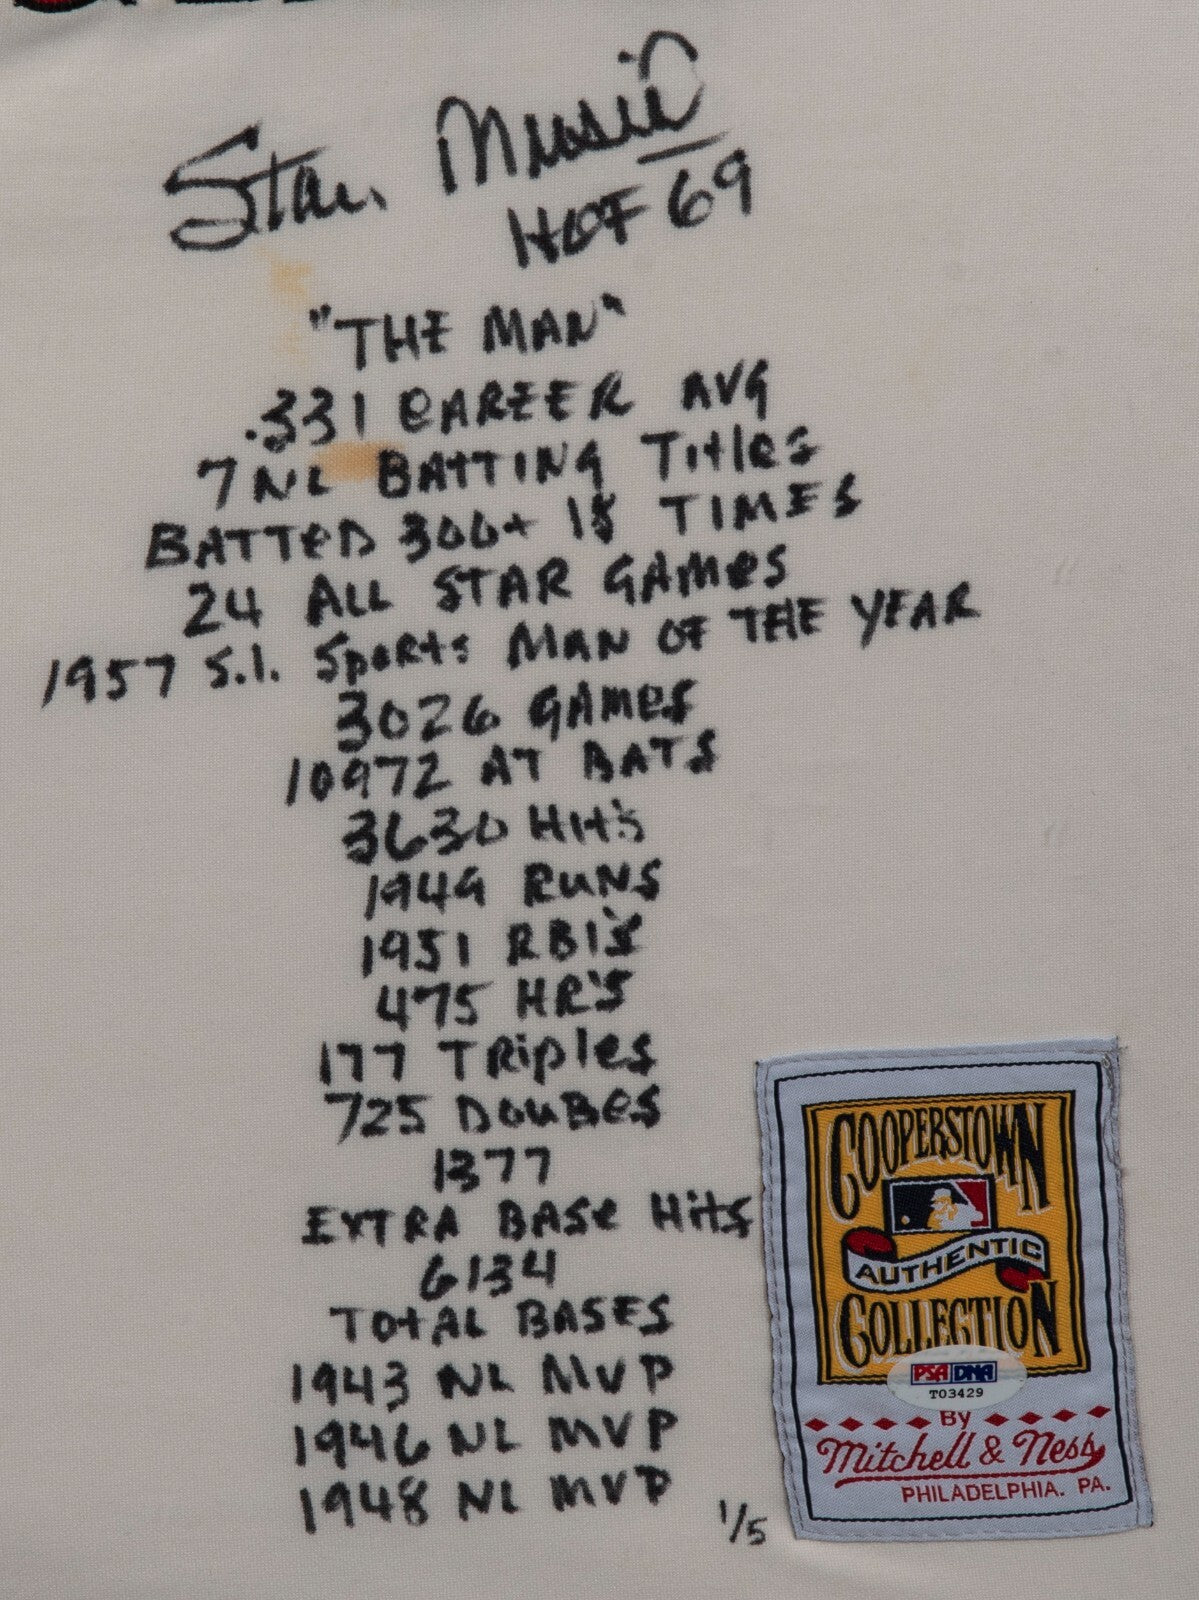 Stan Musial
HOF 69
"THE MAN"
.331 CAREER AVG
7 NL BATTING TitlEs
BATTED 300+ 18 TIMES
24 ALL STAR GAMES
1957 S.I. SpORts MAN OF THE YEAR
3026 GAMES
10972 AT BATS
3630 Hit's
1949 RUNS
1951 RBI'S
475 HR'S
177 TRiplEs
725 DOUBES
1377
EXTRA BASE Hits
6134
TOtAL BASES
1943 NL MVP
1946 NL MVP
1948 NL MVP
1/5
COOPERSTOWN
AUTHENTIC
COLLECTION
PSA DNA
T03429
By
Mitchell & Ness
PHILADELPHIA. PA.